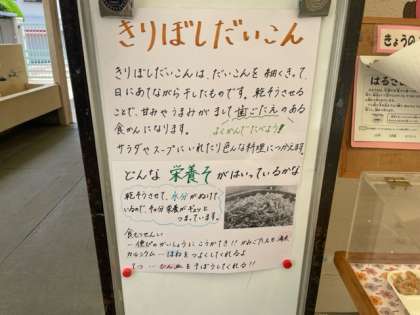 きりぼしだいこん
きりぼしだいこんは、だいこんを細くきって、
日にあてながら干したものです。乾そうさせる
ことで、甘みやうまみがまして歯ごたえのある
食めんになります。
よくかんでたべよう!!
サラダやスープにいれたり色んな料理につかえます。
どんな栄養そがはいっているかな
乾そうさせて、水分がぬけて
いるので、その分栄養がギュッと
つまっています。
食もつせんい
カルシウム…ほねをつよくしてくれるよ
てつ…ひんけつをそぼうしてくれる!!
きょうの
はるさ